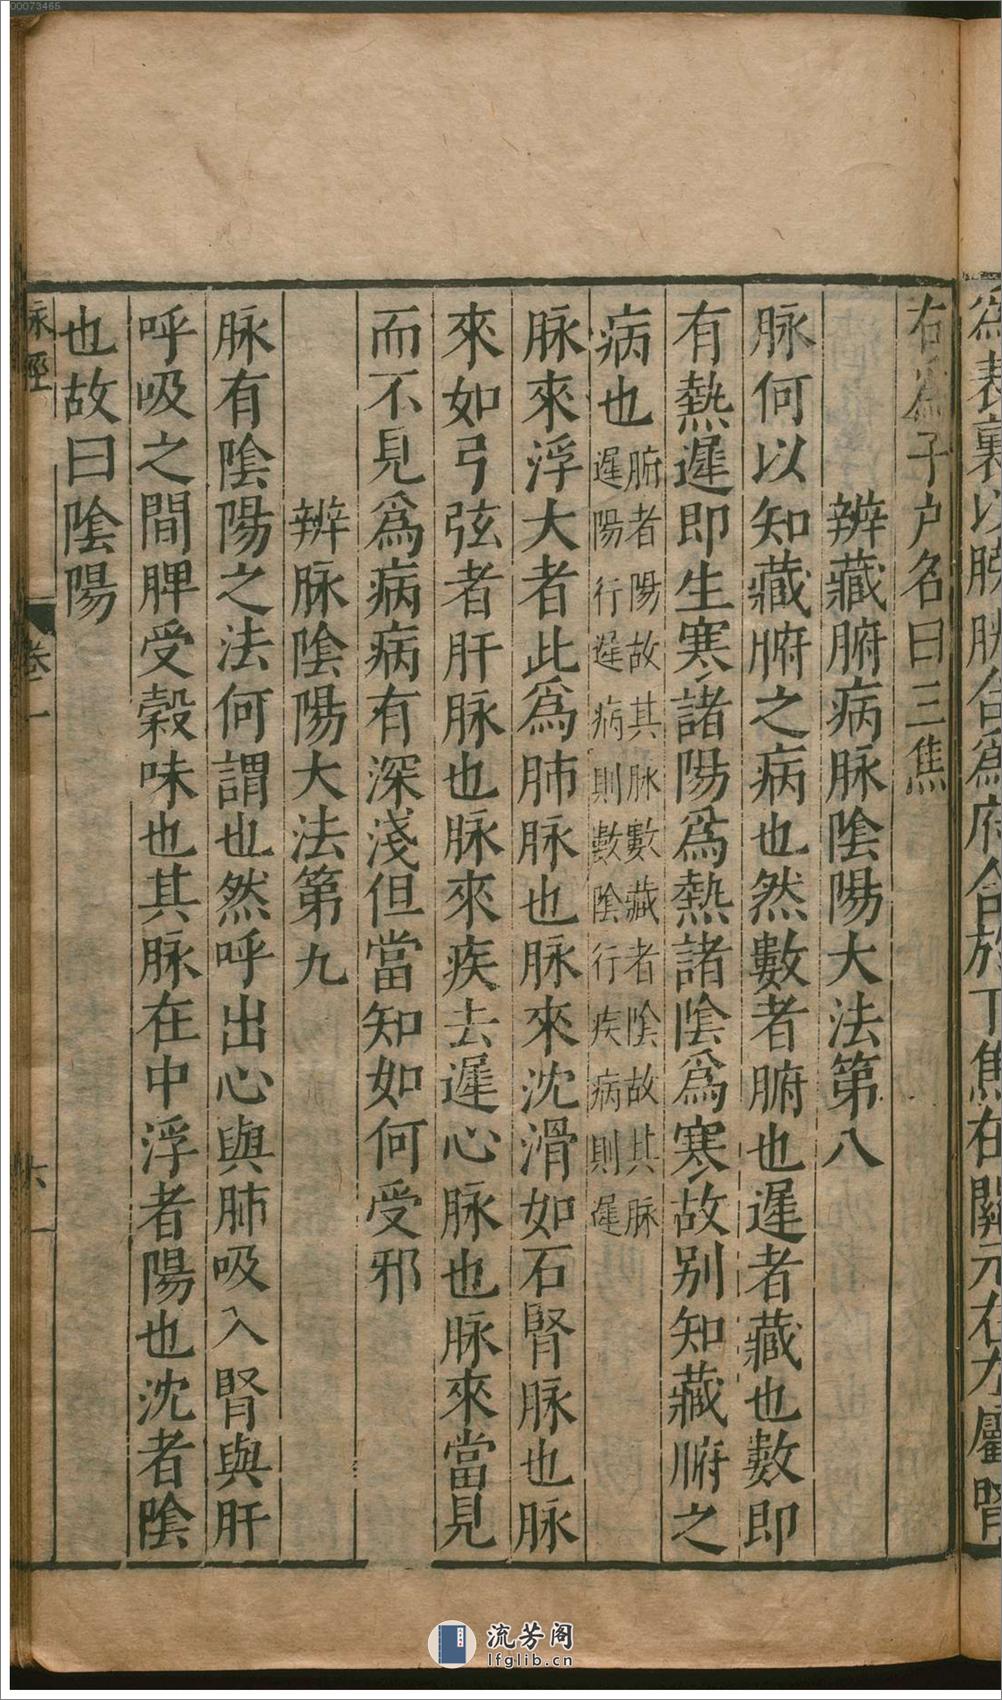 00073465
爲表裏以膀胱合爲府合於下焦在關元在左屬腎
右爲子户名曰三焦
辨藏腑病脉陰陽大法第八
脉何以知藏腑之病也然數者腑也遲者藏也數即
有熱遲即生寒諸陽爲熱諸陰爲寒故别知藏腑之
病也腑者陽故其脉數藏者陰故其脉
遲陽行遲病則數陰行疾病則遲
脉來浮大者此爲肺脉也脉來沈滑如石腎脉也脉
來如弓弦者肝脉也脉來疾去遲心脉也脉來當見
而不見爲病病有深淺但當知如何受邪
辨脉陰陽大法第九
脉有陰陽之法何謂也然呼出心與肺吸入腎與肝
呼吸之間脾受穀味也其脉在中浮者陽也沈者陰
也故曰陰陽
脉經 卷一 六
流芳阁
lfglib.cn